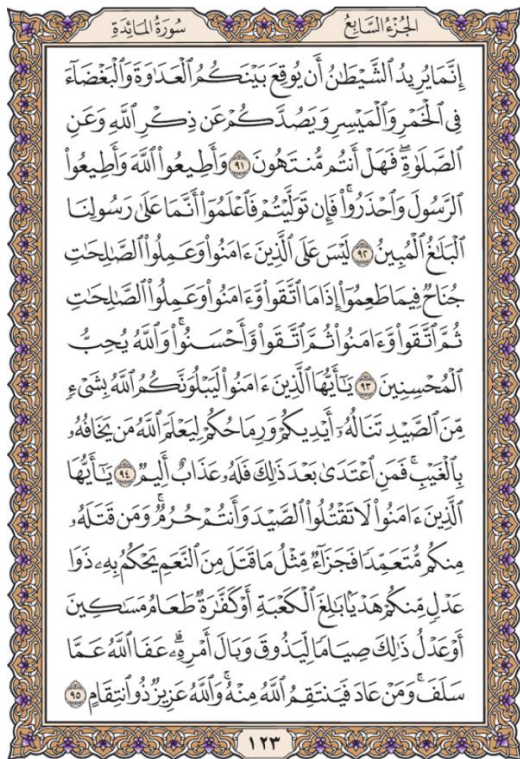 سُورَةُ المَائِدَةِ
الجُزْءُ السَّابِعُ
إِنَّمَا يُرِيدُ ٱلشَّيْطَٰنُ أَن يُوقِعَ بَيْنَكُمُ ٱلْعَدَٰوَةَ وَٱلْبَغْضَآءَ
فِى ٱلْخَمْرِ وَٱلْمَيْسِرِ وَيَصُدَّكُمْ عَن ذِكْرِ ٱللَّهِ وَعَنِ
ٱلصَّلَوٰةِ ۖ فَهَلْ أَنتُم مُّنتَهُونَ ٩١ وَأَطِيعُوا۟ ٱللَّهَ وَأَطِيعُوا۟
ٱلرَّسُولَ وَٱحْذَرُوا۟ ۚ فَإِن تَوَلَّيْتُمْ فَٱعْلَمُوٓا۟ أَنَّمَا عَلَىٰ رَسُولِنَا
ٱلْبَلَٰغُ ٱلْمُبِينُ ٩٢ لَيْسَ عَلَى ٱلَّذِينَ ءَامَنُوا۟ وَعَمِلُوا۟ ٱلصَّٰلِحَٰتِ
جُنَاحٌ فِيمَا طَعِمُوٓا۟ إِذَا مَا ٱتَّقَوا۟ وَّءَامَنُوا۟ وَعَمِلُوا۟ ٱلصَّٰلِحَٰتِ
ثُمَّ ٱتَّقَوا۟ وَّءَامَنُوا۟ ثُمَّ ٱتَّقَوا۟ وَّأَحْسَنُوا۟ ۗ وَٱللَّهُ يُحِبُّ
ٱلْمُحْسِنِينَ ٩٣ يَٰٓأَيُّهَا ٱلَّذِينَ ءَامَنُوا۟ لَيَبْلُوَنَّكُمُ ٱللَّهُ بِشَىْءٍ
مِّنَ ٱلصَّيْدِ تَنَالُهُۥٓ أَيْدِيكُمْ وَرِمَاحُكُمْ لِيَعْلَمَ ٱللَّهُ مَن يَخَافُهُۥ
بِٱلْغَيْبِ ۚ فَمَنِ ٱعْتَدَىٰ بَعْدَ ذَٰلِكَ فَلَهُۥ عَذَابٌ أَلِيمٌ ٩٤ يَٰٓأَيُّهَا
ٱلَّذِينَ ءَامَنُوا۟ لَا تَقْتُلُوا۟ ٱلصَّيْدَ وَأَنتُمْ حُرُمٌ ۚ وَمَن قَتَلَهُۥ
مِنكُم مُّتَعَمِّدًا فَجَزَآءٌ مِّثْلُ مَا قَتَلَ مِنَ ٱلنَّعَمِ يَحْكُمُ بِهِۦ ذَوَا
عَدْلٍ مِّنكُمْ هَدْيًۢا بَٰلِغَ ٱلْكَعْبَةِ أَوْ كَفَّٰرَةٌ طَعَامُ مَسَٰكِينَ
أَوْ عَدْلُ ذَٰلِكَ صِيَامًا لِّيَذُوقَ وَبَالَ أَمْرِهِۦ ۗ عَفَا ٱللَّهُ عَمَّا
سَلَفَ ۚ وَمَنْ عَادَ فَيَنتَقِمُ ٱللَّهُ مِنْهُ ۗ وَٱللَّهُ عَزِيزٌ ذُو ٱنتِقَامٍ ٩٥
١٢٣